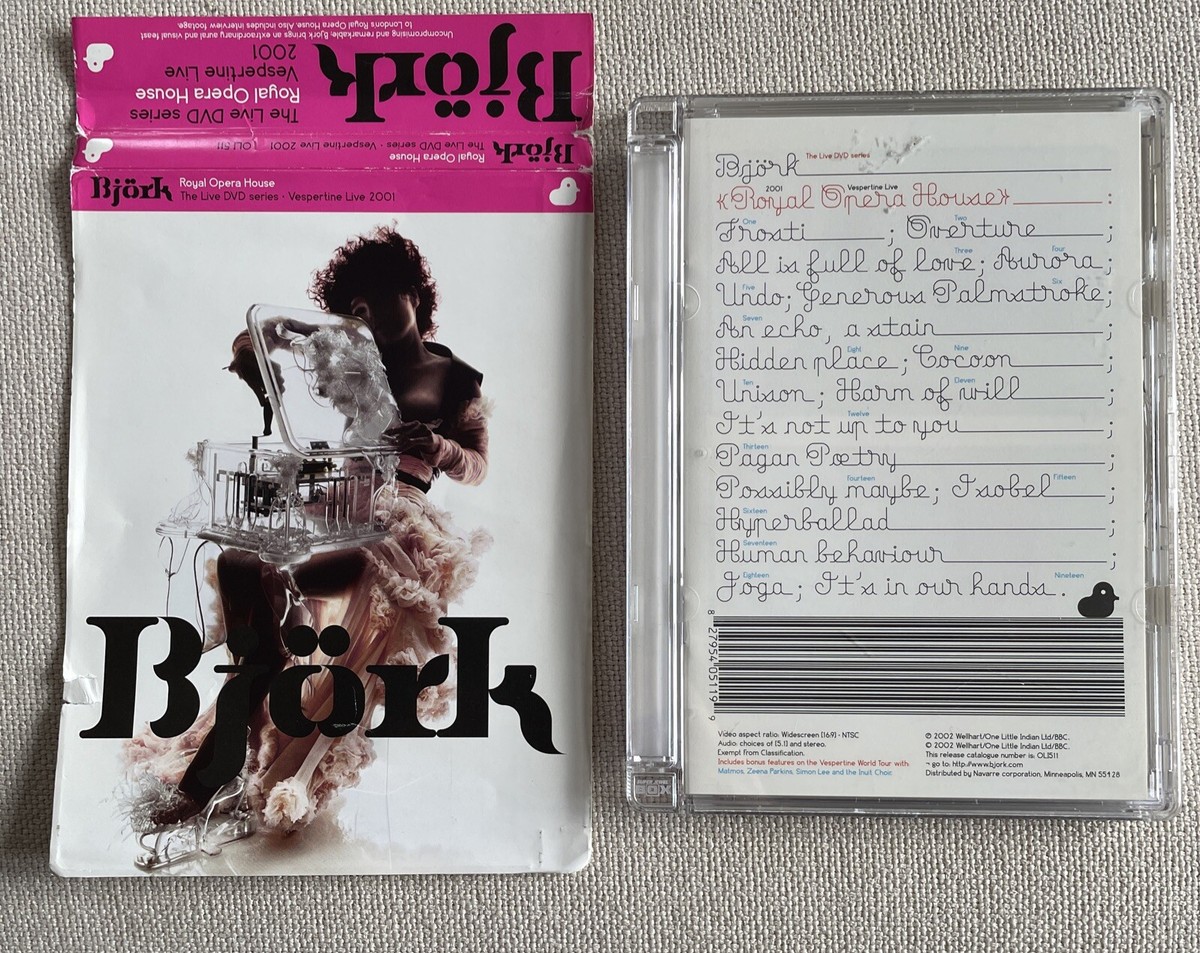 Uncompromising and remarkable, Björk brings an extraordinary aural and visual feast
to London's Royal Opera House. Also includes interview footage.
Björk
The Live DVD series
Royal Opera House
Vespertine Live
2001
Björk
Royal Opera House
The Live DVD series · Vespertine Live 2001
OLI 511
Björk
Royal Opera House
The Live DVD series · Vespertine Live 2001
Björk
Björk The Live DVD series
2001 Vespertine Live
«Royal Opera House» :
One Two
Frosti ; Overture ;
Three Four
All is full of love; Aurora ;
Five Six
Undo; Generous Palmstroke;
Seven
An echo, a stain ;
Eight Nine
Hidden place ; Cocoon ;
Ten Eleven
Unison ; Harm of will ;
Twelve
It's not up to you ;
Thirteen
Pagan Poetry ;
Fourteen Fifteen
Possibly maybe; Isobel ;
Sixteen
Hyperballad ;
Seventeen
Human behaviour ;
Eighteen Nineteen
Joga ; It's in our hands .
8 27954 05119 9
Video aspect ratio: Widescreen [16:9] - NTSC
Audio: choices of [5.1] and stereo.
Exempt From Classification.
Includes bonus features on the Vespertine World Tour with
Matmos, Zeena Parkins, Simon Lee and the Inuit Choir.
℗ 2002 Wellhart/One Little Indian Ltd/BBC.
© 2002 Wellhart/One Little Indian Ltd/BBC.
This release catalogue number is: OLI511
¬ go to: http://www.bjork.com
Distributed by Navarre corporation, Minneapolis, MN 55428